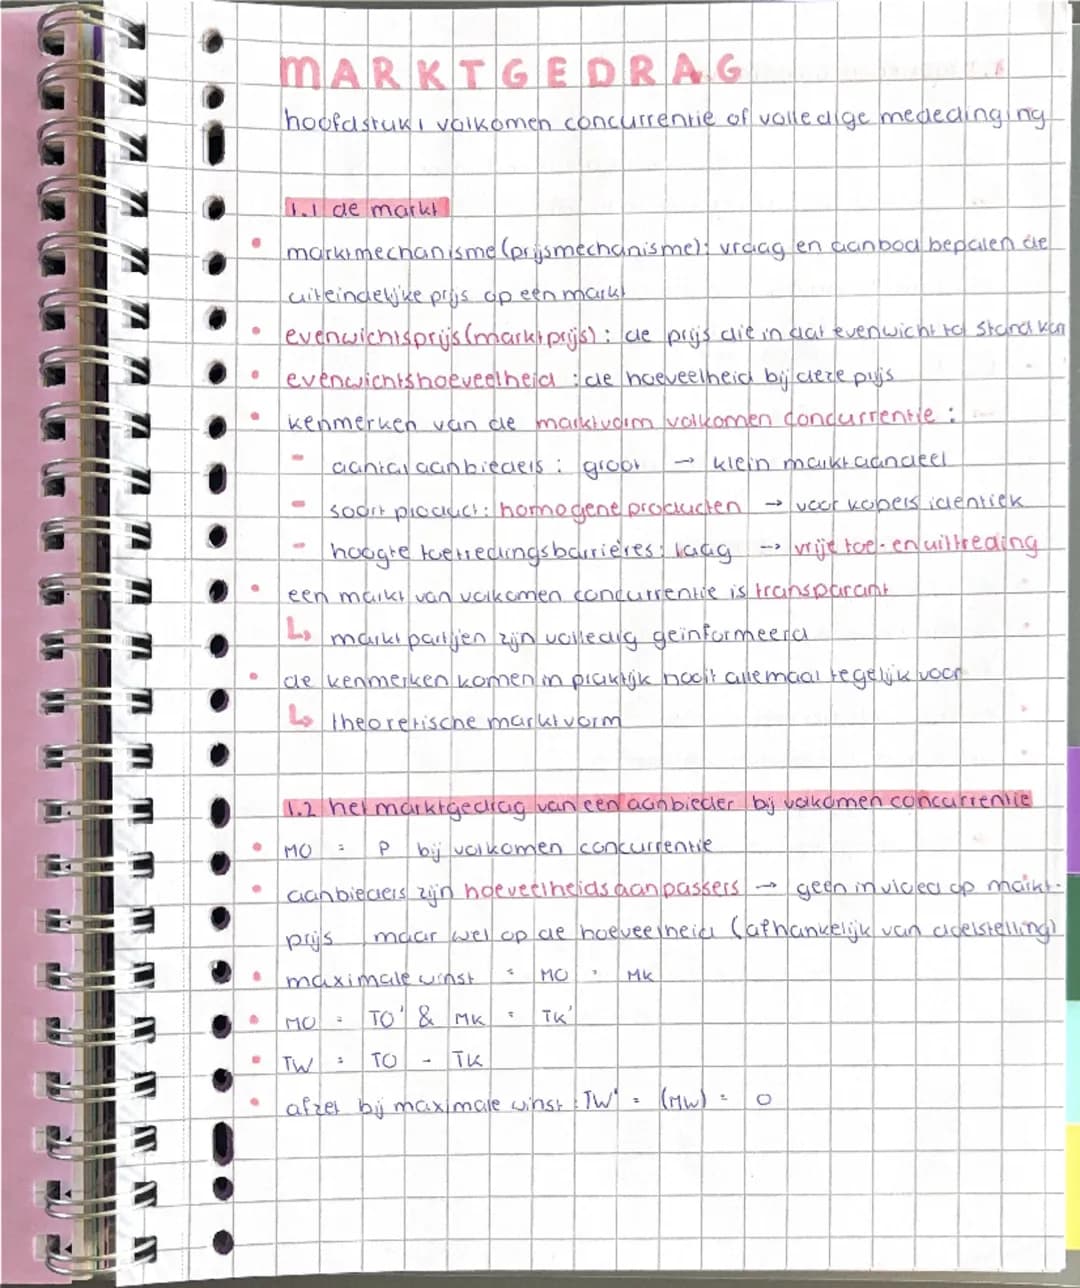 MARKTGEDRAG
hoofdstuk 1 volkomen concurrentie of volledige mededinging
1.1 de markt
• marktmechanisme (prijsmechanisme): vraag en aanbod bepalen de
uiteindelijke prijs op een markt
• evenwichtsprijs (marktprijs): de prijs die in dat evenwicht tot stand kan
• evenwichtshoeveelheid: de hoeveelheid bij deze prijs
• kenmerken van de marktvorm volkomen concurrentie:
- aantal aanbieders: groot → klein marktaandeel
- soort product: homogene producten → voor kopers identiek
- hoogte toetredingsbarrières: laag → vrije toe- en uittreding
• een markt van volkomen concurrentie is transparant
↳ marktpartijen zijn volledig geïnformeerd
• de kenmerken komen in praktijk nooit allemaal tegelijk voor
↳ theoretische marktvorm
1.2 het marktgedrag van een aanbieder bij volkomen concurrentie
• MO = P bij volkomen concurrentie
• aanbieders zijn hoeveelheidsaanpassers → geen invloed op markt-
prijs maar wel op de hoeveelheid (afhankelijk van doelstelling)
• maximale winst = MO = MK
• MO = TO' & MK = TK'
• TW = TO - TK
• afzet bij maximale winst: TW' = (MW) = 0